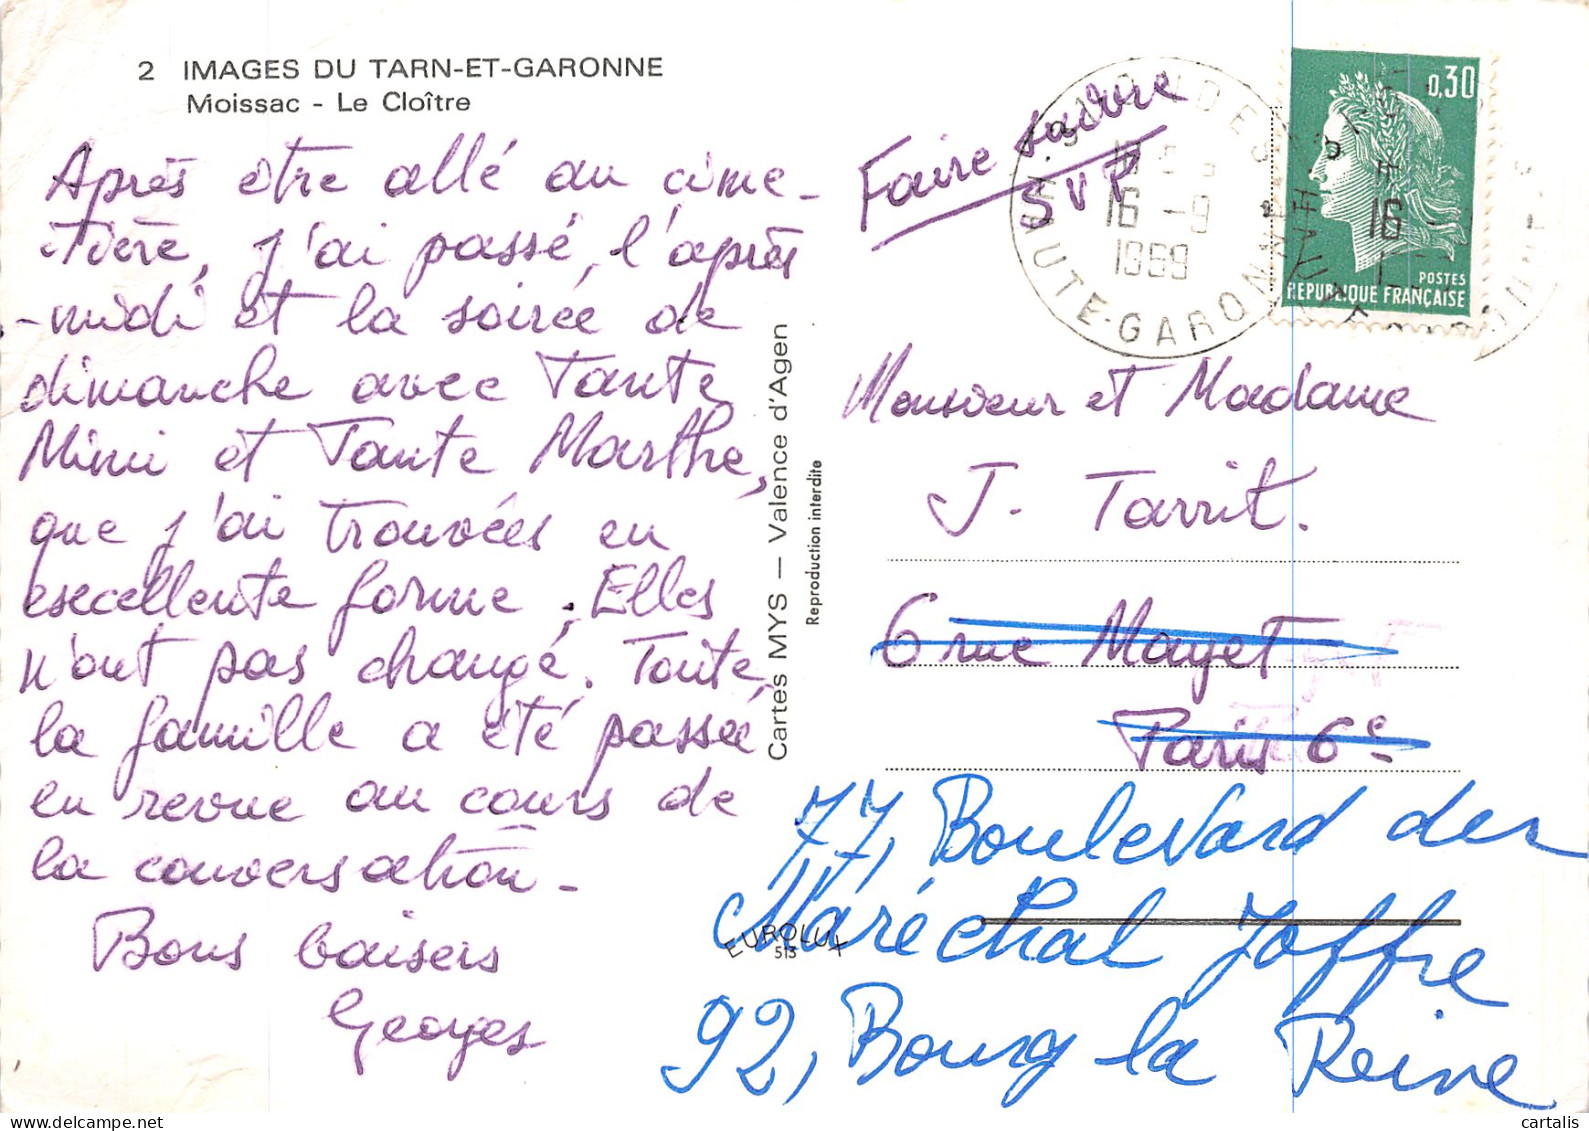 2 IMAGES DU TARN-ET-GARONNE
Moissac - Le Cloître
Après être allé au cime-
-tière, j'ai passé, l'après
-midi et la soirée de
dimanche avec Tante
Mimi et Tante Marthe,
que j'ai trouvées en
excellente forme. Elles
n'ont pas changé. Toute
la famille a été passée
en revue au cours de
la conversation -
Bons baisers
Georges
Cartes MYS — Valence d'Agen
Reproduction interdite
Faire suivre
SVP
16 -9
1969
HAUTE-GARONNE
0,30
16
POSTES
REPUBLIQUE FRANÇAISE
Monsieur et Madame
J. Tarrit.
6 rue Mayet
Paris 6e
77, Boulevard du
Maréchal Joffre
92, Bourg la Reine
EUROLUX
513
cartalis